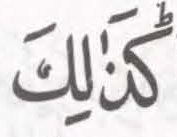 كَذٰلِكَؕ